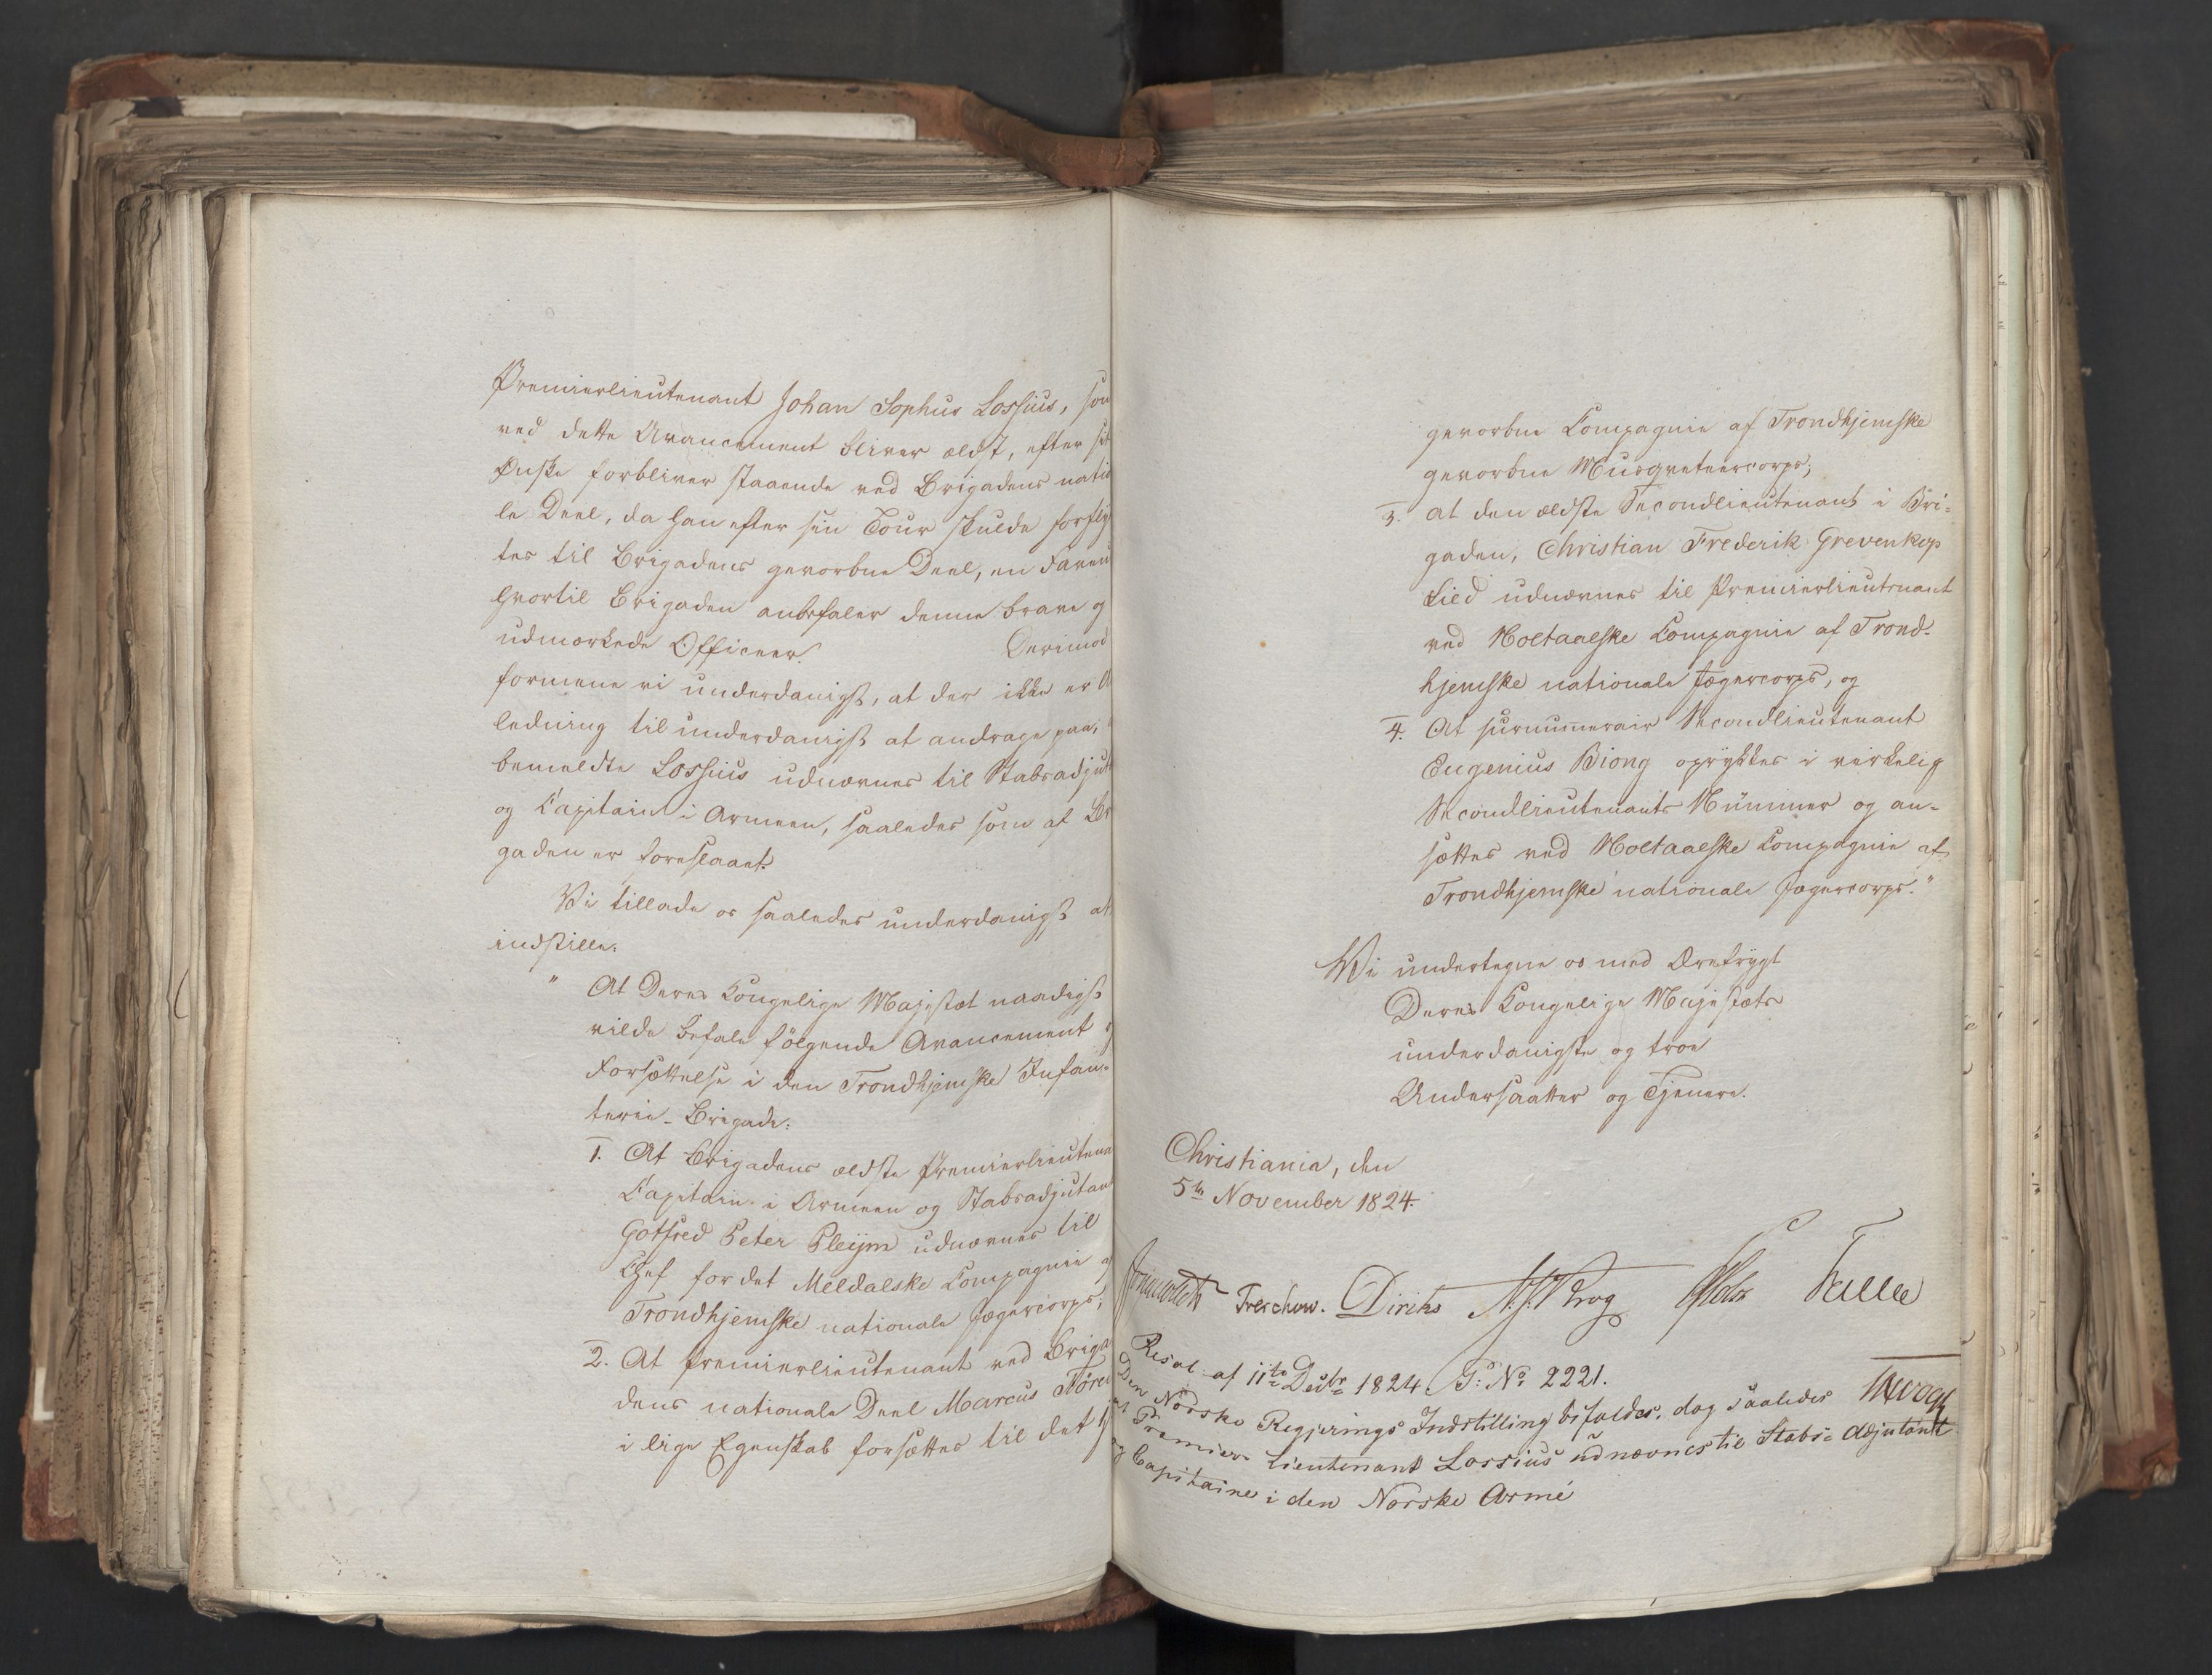 Premierlieutenant Johan Sophus Lossius, som
ved dette Avancement bliver ældst, efter sit
Ønske forbliver staaende ved Brigadens natio
le Deel, da han efter sin Tour skulde forfly
tes til Brigadens gevorbne Deel, en Faveur
hvortil Brigaden anbefaler denne brave og
udmærkede Officeer. Derimod
formene vi underdanigst, at der ikke er A
ledning til underdanigst at andrage paa, at
bemeldte Lossius udnævnes til Stabsadjut
og Capitain i Armeen, saaledes som af Br
gaden er foreslaaet.
Vi tillade os saaledes underdanigst at
indstille:
" At Deres Kongelige Majestæt naadigst
vilde befale følgende Avancement og
Forsættelse i den Trondhjemske Infan-
terie-Brigade:
1. At Brigadens ældste Premierlieutena
Capitain i Armeen og Stabsadjutant
Gotfred Peter Pleym udnævnes til
Chef for det Meldalske Compagnie af
Trondhjemske nationale Jægercorps;
2. At Premierlieutenant ved Briga
dens nationale Deel Marcus
i lige Egenskab forsættes til det
gevorbne Compagnie af Trondhjemske
gevorbne Musqveteercorps;
3. at den ældste Secondlieutenant i Bri-
gaden, Christian Frederik Grevenkop
Lied udnævnes til Premierlieutenant
ved Holtaalske Compagnie af Trond-
hjemske nationale Jægercorps, og
4. At surnumerair Secondlieutenant
Eugenius Biong oprykkes i virkelig
Secondlieutenants Nummer og an-
sættes ved Holtaalske Compagnie af
Trondhjemske nationale Jægercorps."
Vi undertegne os med Ærefrygt
Deres Kongelige Majestæts
underdanigste og troe
Undersaatter og Tjenere.
Christiania, den
5te November 1824.
Treschow. Diriks Krog Holst Falbe
Resol. af 11te Decbr 1824. P: No 2221.
Den Norske Regjerings Indstilling bifaldes, dog saaledes
at Premier Lieutenant Lossius udnævnes til Stabs-Adjutant
og Capitaine i den Norske Armé